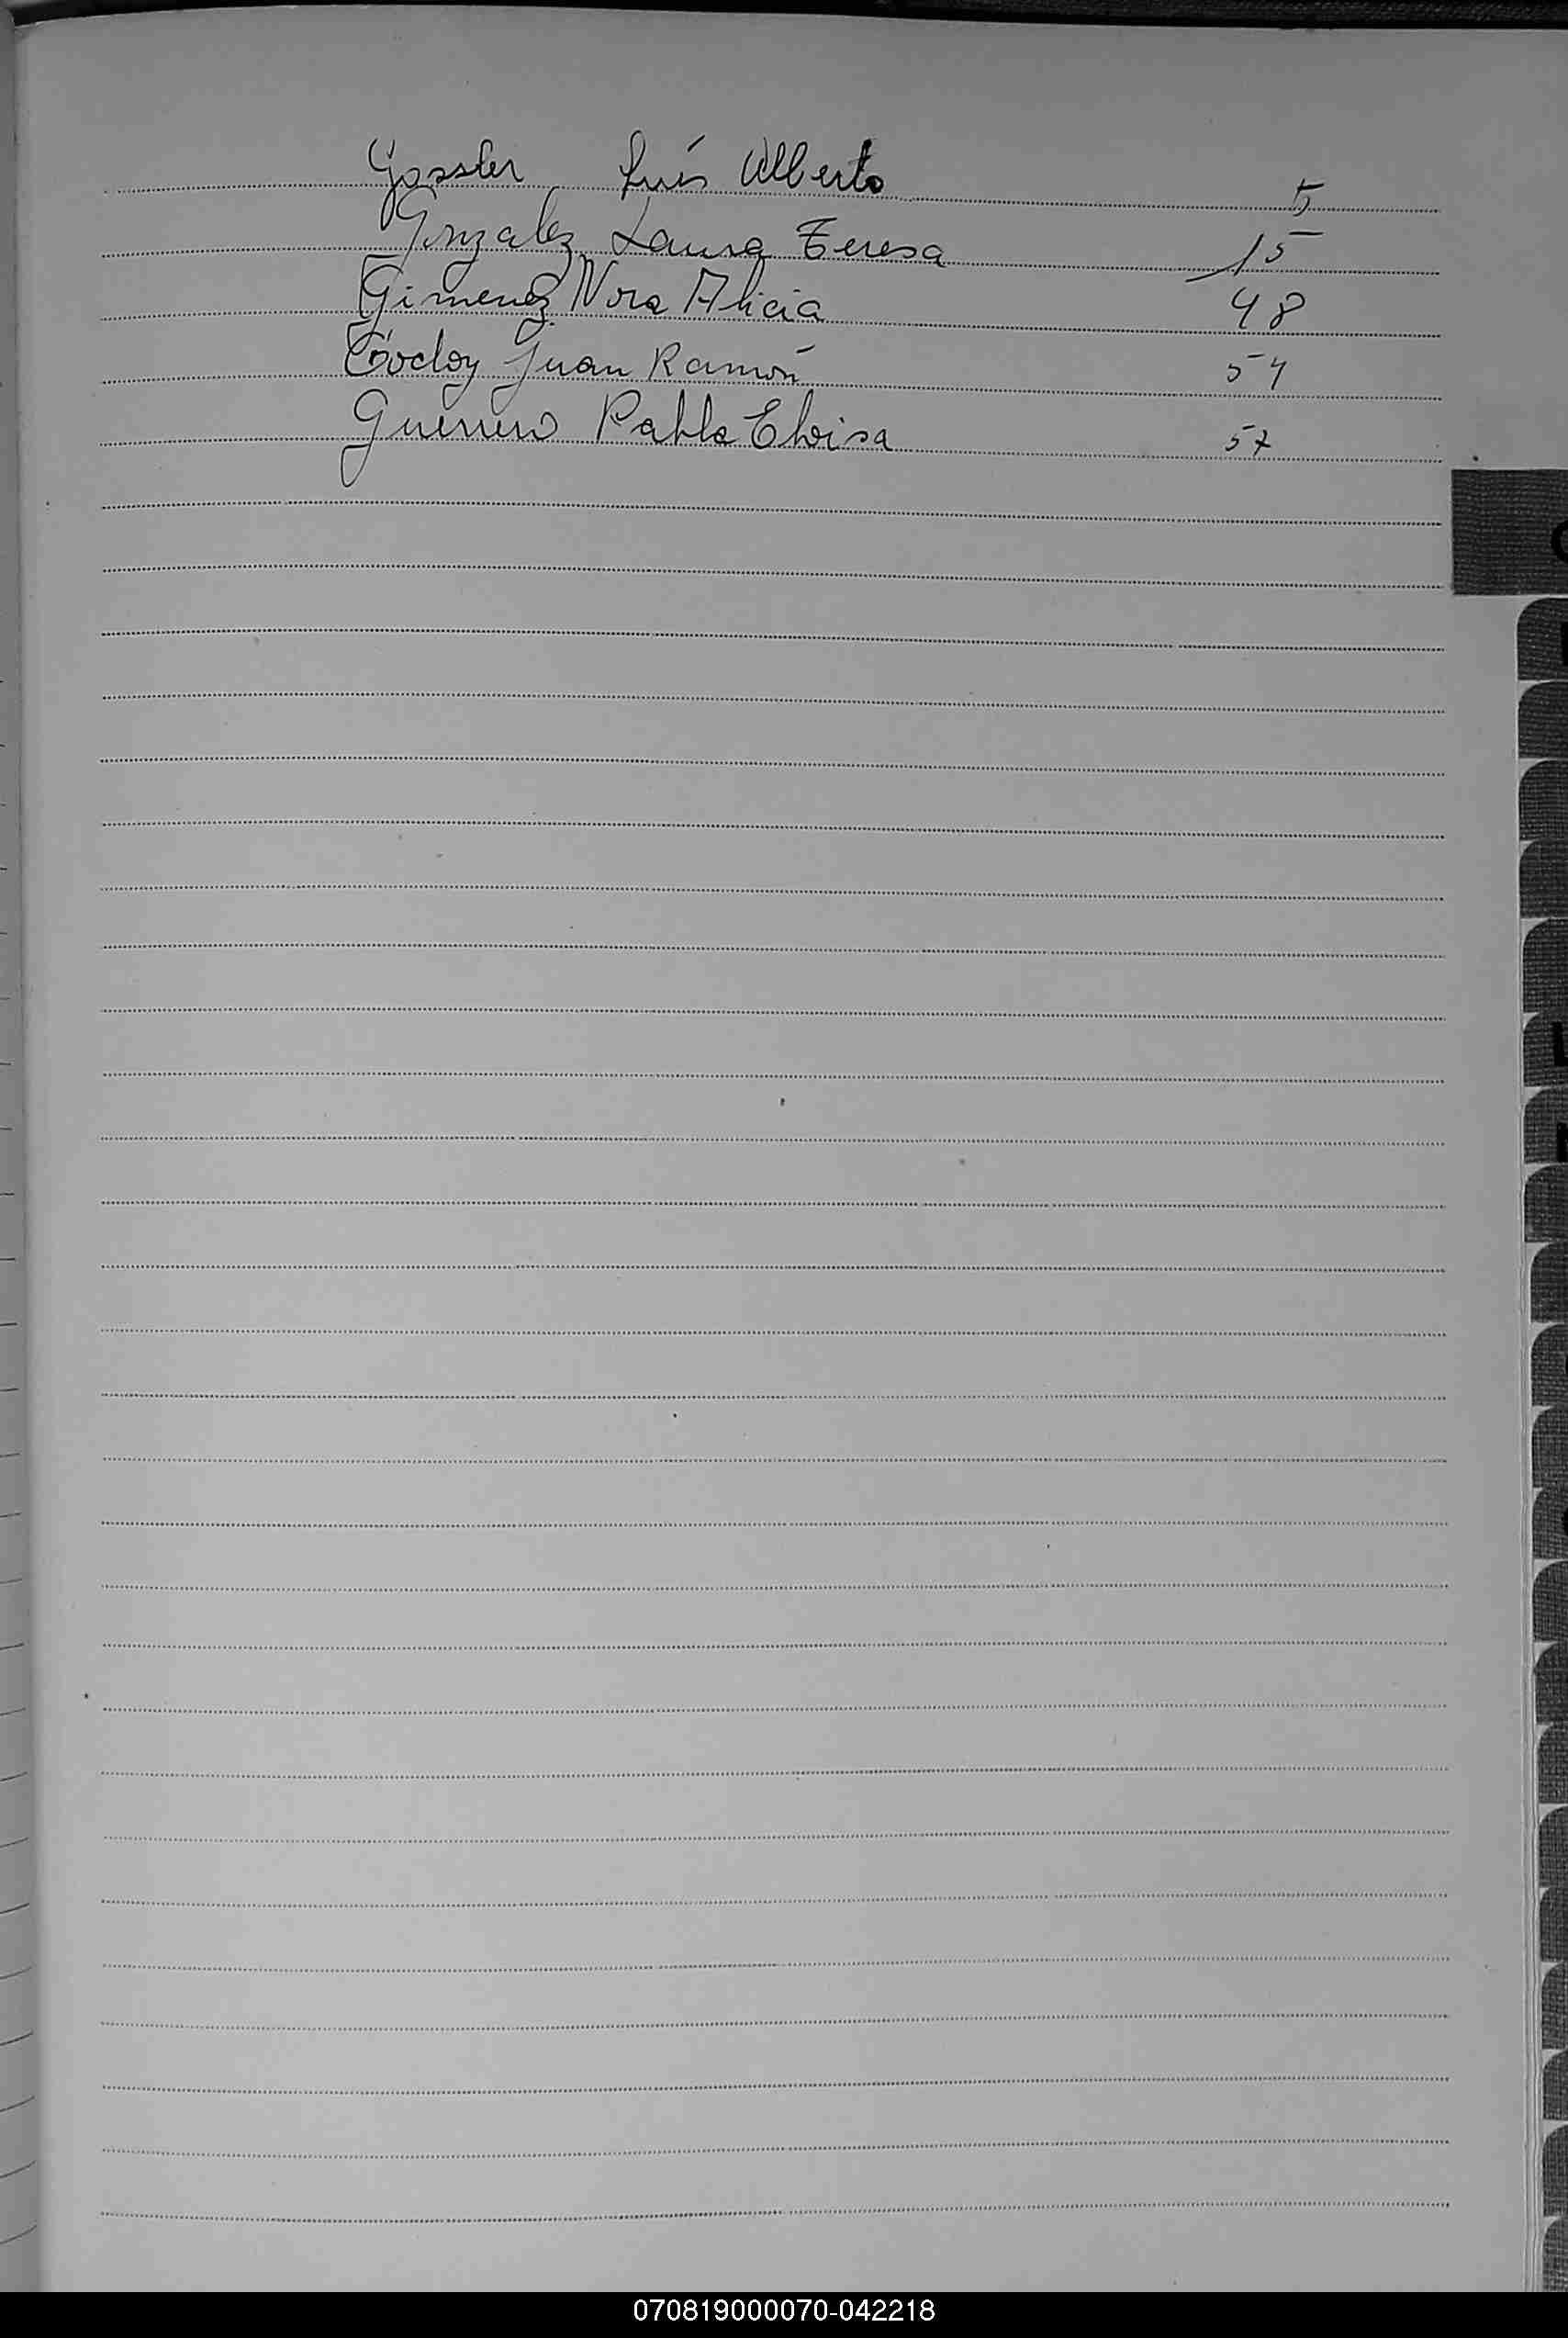 Gossler Luís Alberto 5
Gonzalez Laura Teresa 15
Gimenez Nora Alicia 48
Godoy Juan Ramón 54
Guerrero Pabla Eloisa 57
070819000070-042218